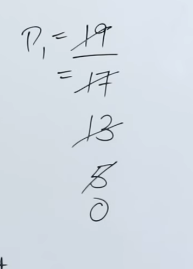 P₁ = 19
= 17
13
5
0